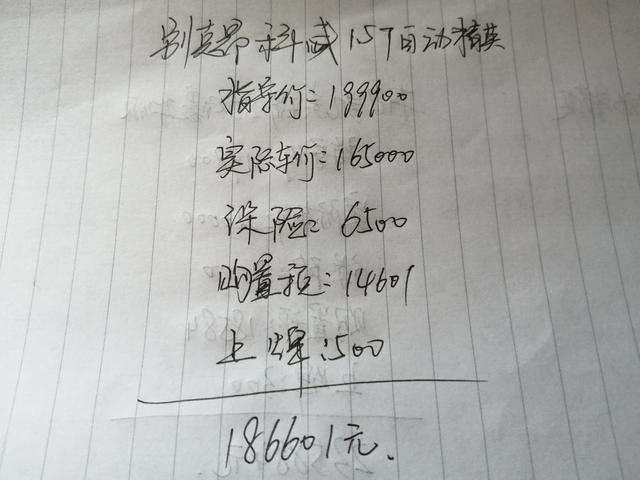 别克昂科威15T自动精英
指导价:199900
实际车价:165000
保险: 6500
购置税:14601
上牌:500
186601元.